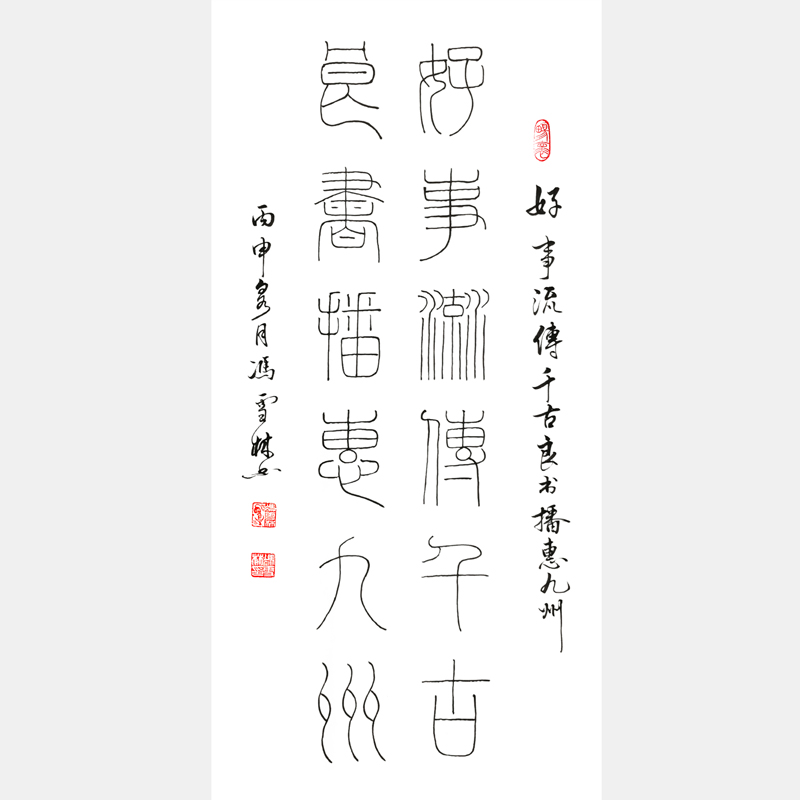 好事流傳千古良书播惠九州
好事流傳千古
良書播惠九州
丙申泉月馮雪林书